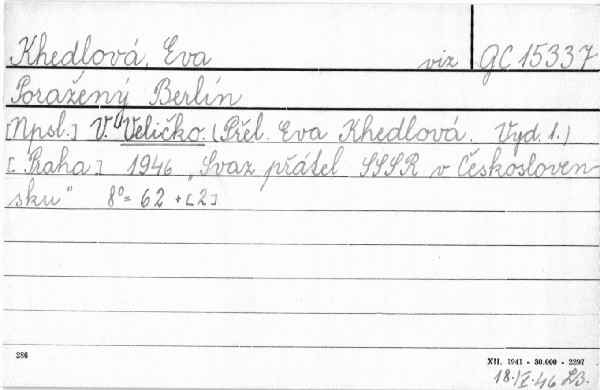 Khedlová, Eva viz GC 15337
Poražený Berlín
[Npsl.] V. Veličko. (Přel. Eva Khedlová. Vyd. 1.)
[Praha] 1946 „Svaz přátel SSSR v Českosloven-
sku" 8° = 62 + [2]
286
XII. 1941 - 30.000 - 2297
18./V.46 LB.